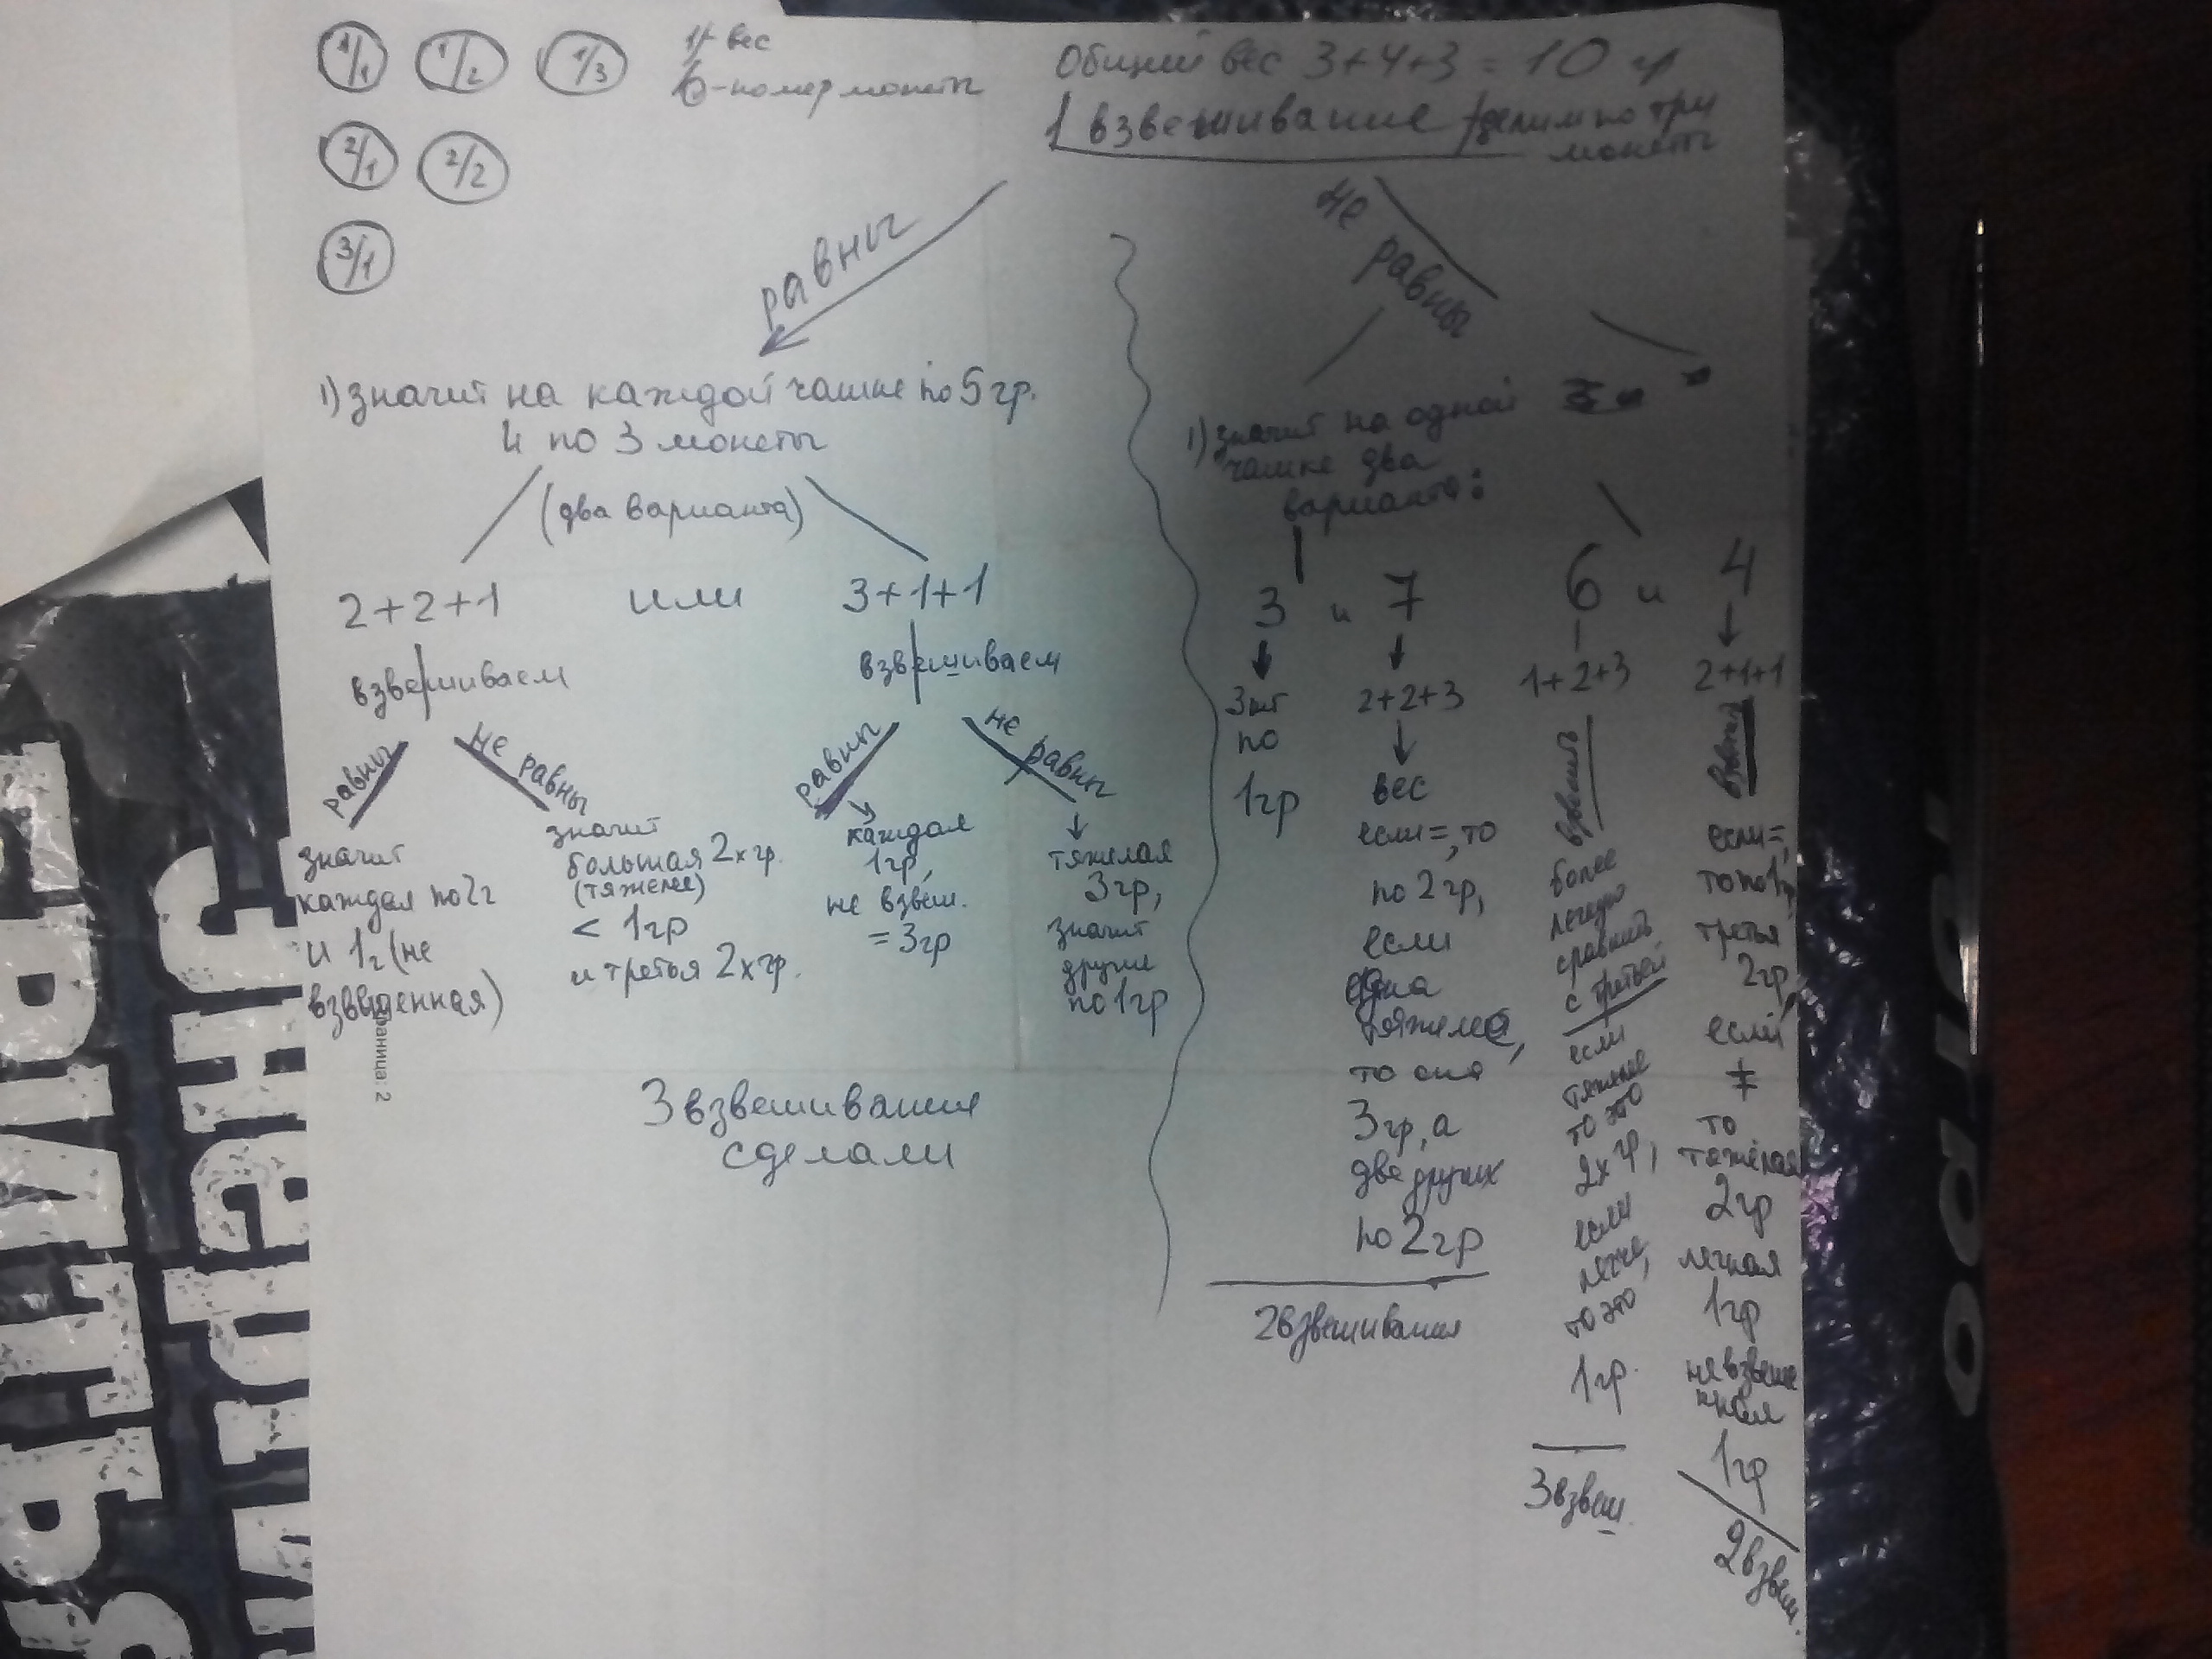 1/1 1/2 1/3
1/ вес
/6 - номер монеты
2/1 2/2
3/1
Общий вес 3+4+3 = 10 гр
1 взвешивание /делим по три
монеты
равны
не равны
1) значит на каждой чашке по 5 гр.
и по 3 монеты
(два варианта)
2+2+1 или 3+1+1
взвешиваем
равны
не равны
значит
каждая по 2г
и 1г (не
взвешенная)
значит
большая 2х гр.
(тяжелее)
< 1гр
и третья 2х гр.
взвешиваем
равны
не равны
каждая
1гр,
не взвеш.
= 3гр
тяжелая
3гр,
значит
другие
по 1гр
3 взвешивания
сделали
1) значит на одной
чашке два
варианта:
3 и 7
6 и 4
3шт
по
1гр
2+2+3
вес
если =, то
по 2гр,
если
одна
тяжелее,
то она
3гр, а
две других
по 2гр
2 взвешивания
1+2+3
взвесить
более
легкую
сравнить
с третьей
если
тяжелее
то это
2х гр,
если
легче,
то это
1гр.
3 взвеш.
2+1+1
если =,
то по 1гр,
третья
2гр,
если
≠
то
тяжёлая
2гр
легкая
1гр
не взвеше
нная
1гр
2 взвеш.
Страница: 2